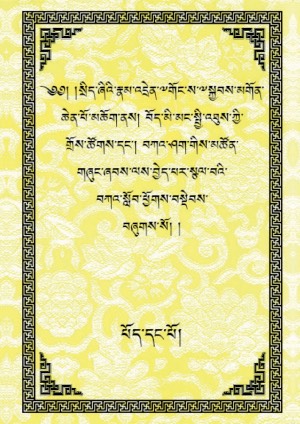 ༄༅། །སྲིད་ཞིའི་རྣམ་འདྲེན་༸གོང་ས་༸སྐྱབས་མགོན་
ཆེན་པོ་མཆོག་ནས། བོད་མི་མང་སྤྱི་འཐུས་ཀྱི་
གྲོས་ཚོགས་དང་། བཀའ་ཤག་གིས་མཚོན་
གཞུང་ཞབས་ལས་བྱེད་པར་སྩལ་བའི་
བཀའ་སློབ་ཕྱོགས་བསྡེབས་
བཞུགས་སོ། །
པོད་དང་པོ།